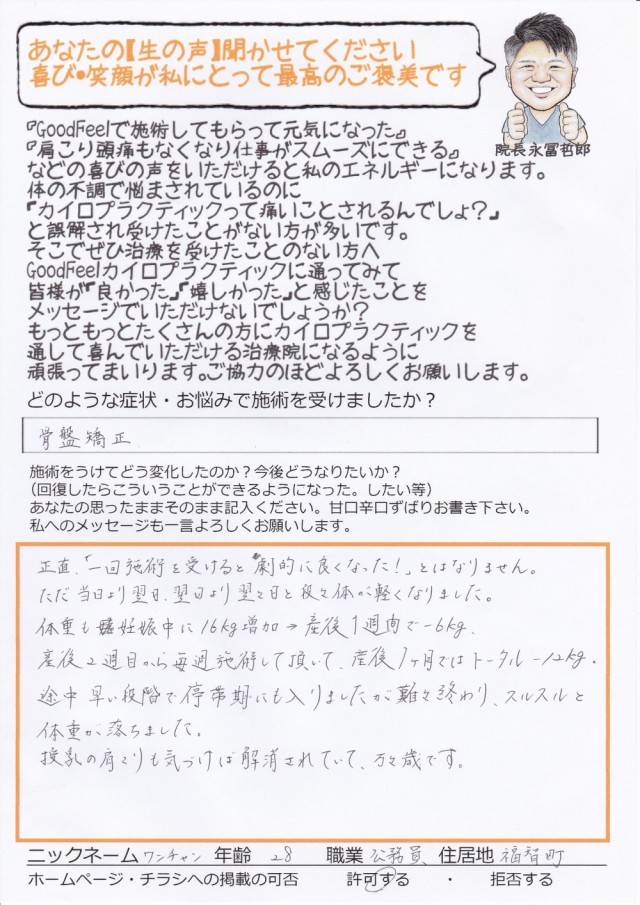 あなたの【生の声】聞かせてください
喜び•笑顔が私にとって最高のご褒美です
院長永冨哲郎
『GoodFeelで施術してもらって元気になった』
『肩こり頭痛もなくなり仕事がスムーズにできる』
などの喜びの声をいただけると私のエネルギーになります。
体の不調で悩まされているのに
「カイロプラクティックって痛いことされるんでしょ？」
と誤解され受けたことがない方が多いです。
そこでぜひ治療を受けたことのない方へ
GoodFeelカイロプラクティックに通ってみて
皆様が「良かった」「嬉しかった」と感じたことを
メッセージでいただけないでしょうか？
もっともっとたくさんの方にカイロプラクティックを
通して喜んでいただける治療院になるように
頑張ってまいります。ご協力のほどよろしくお願いします。
どのような症状・お悩みで施術を受けましたか？
骨盤矯正
施術をうけてどう変化したのか？今後どうなりたいか？
（回復したらこういうことができるようになった。したい等）
あなたの思ったままそのまま記入ください。甘口辛口ずばりお書き下さい。
私へのメッセージも一言よろしくお願いします。
正直、「一回施術を受けると劇的に良くなった!」とはなりません。
ただ当日より翌日、翌日より翌々日と段々体が軽くなりました。
体重も妊娠中に16kg増加→産後1週間で-6kg、
産後2週目から毎週施術して頂いて、産後1ヶ月ではトータル-12kg。
途中早い段階で停滞期にも入りましたが難々終わり、スルスルと
体重が落ちました。
授乳の肩こりも気づけば解消されていて、万々歳です。
ニックネーム ワンチャン 年齢 28 職業 公務員 住居地 福智町
ホームページ・チラシへの掲載の可否 許可する ・ 拒否する